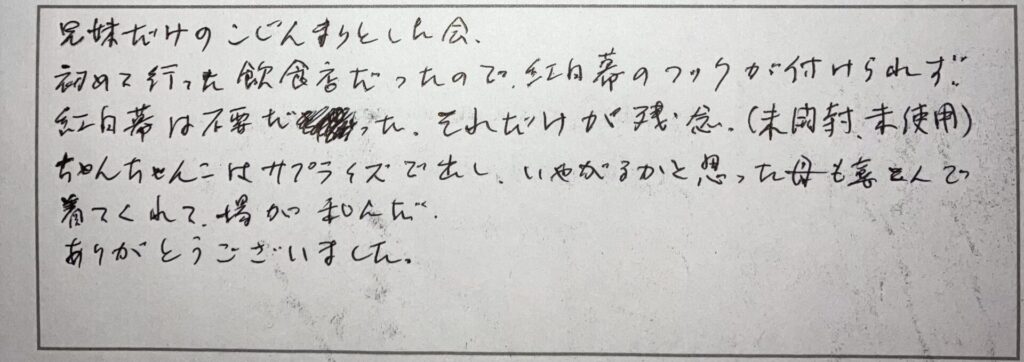 兄妹だけのこじんまりとした会、
初めて行った飲食店だったので、紅白幕のフックが付けられず、
紅白幕は不要だった、それだけが残念、(未開封、未使用)
ちゃんちゃんこはサプライズで出し、いやがるかと思った母も喜こんで
着てくれて、場が和んだ。
ありがとうございました。